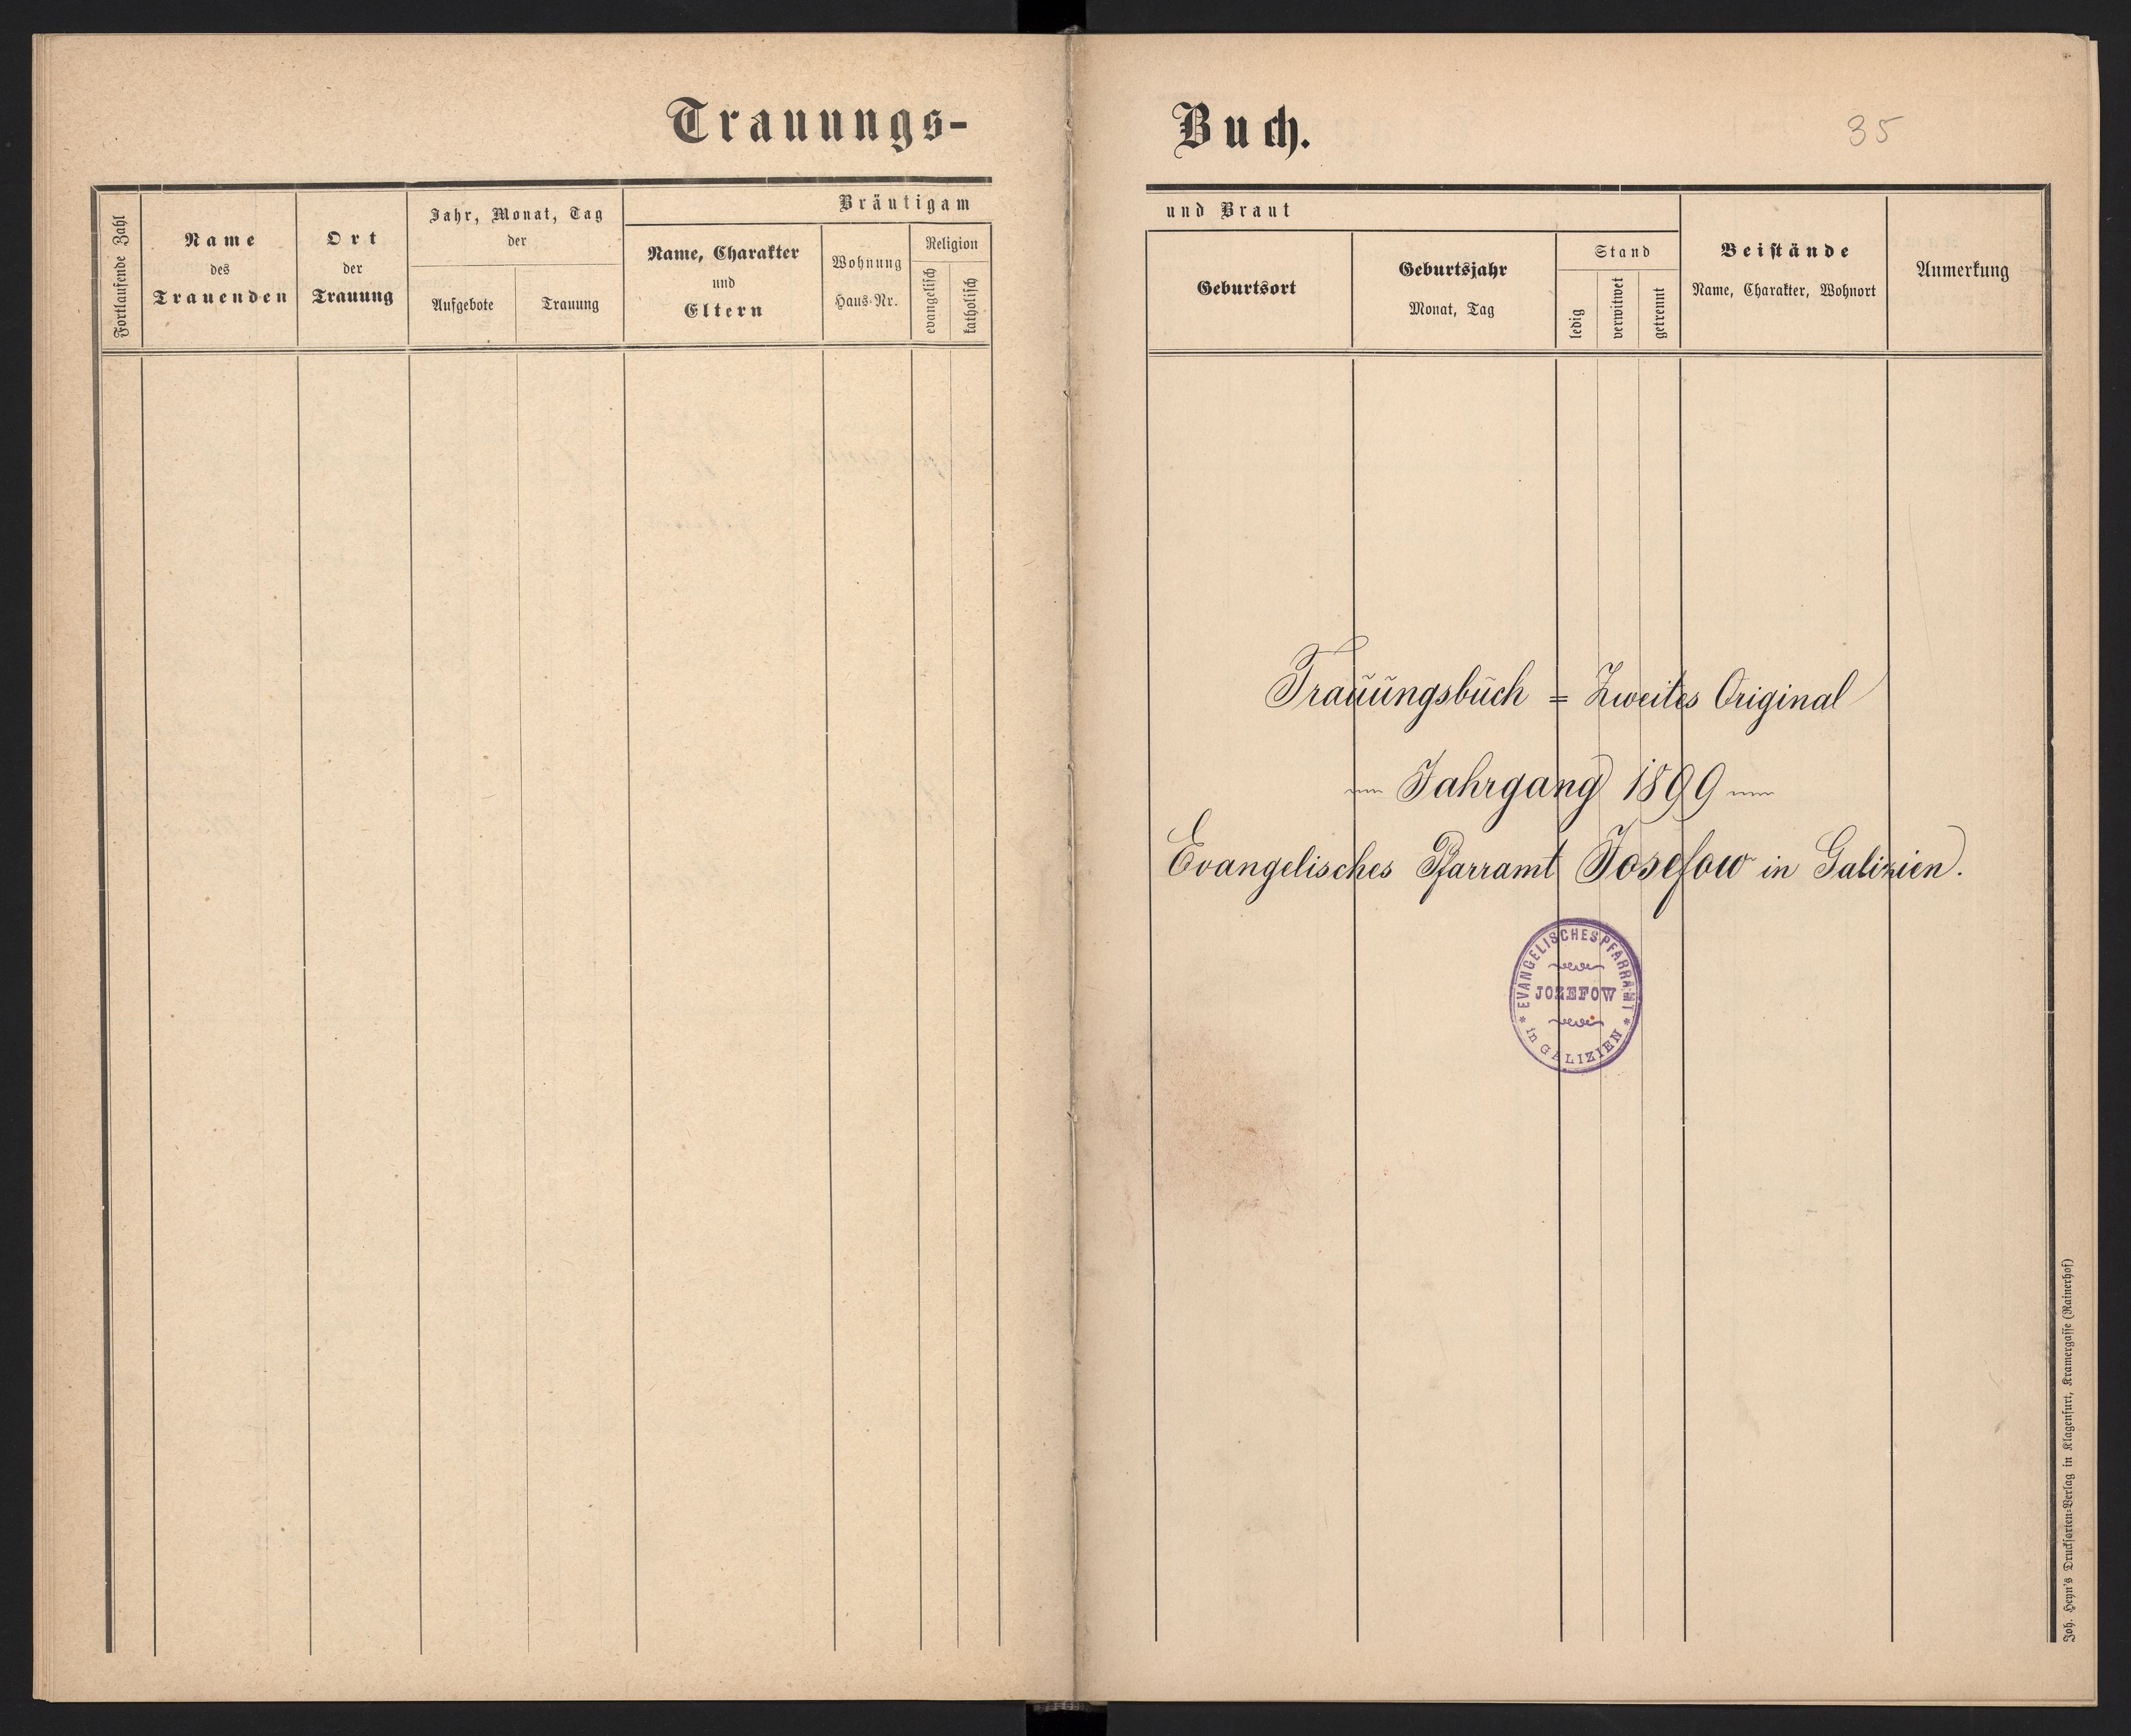 Trauungs-
Buch.
35
Fortlaufende Zahl
Name
des
Trauenden
Ort
der
Trauung
Jahr, Monat, Tag
der
Aufgebote
Trauung
Bräutigam
Name, Charakter
und
Eltern
Wohnung
Haus-Nr.
Religion
evangelisch
katholisch
und Braut
Geburtsort
Geburtsjahr
Monat, Tag
Stand
ledig
verwitwet
getrennt
Beistände
Name, Charakter, Wohnort
Anmerkung
Trauungsbuch = Zweites Original
Jahrgang 1899
Evangelisches Pfarramt Josefow in Galizien.
* EVANGELISCHES PFARRAMT *
JOZEFOW
in GALIZIEN
Joh. Heyn's Drucksorten-Verlag in Klagenfurt, Kramergasse (Rainerhof)